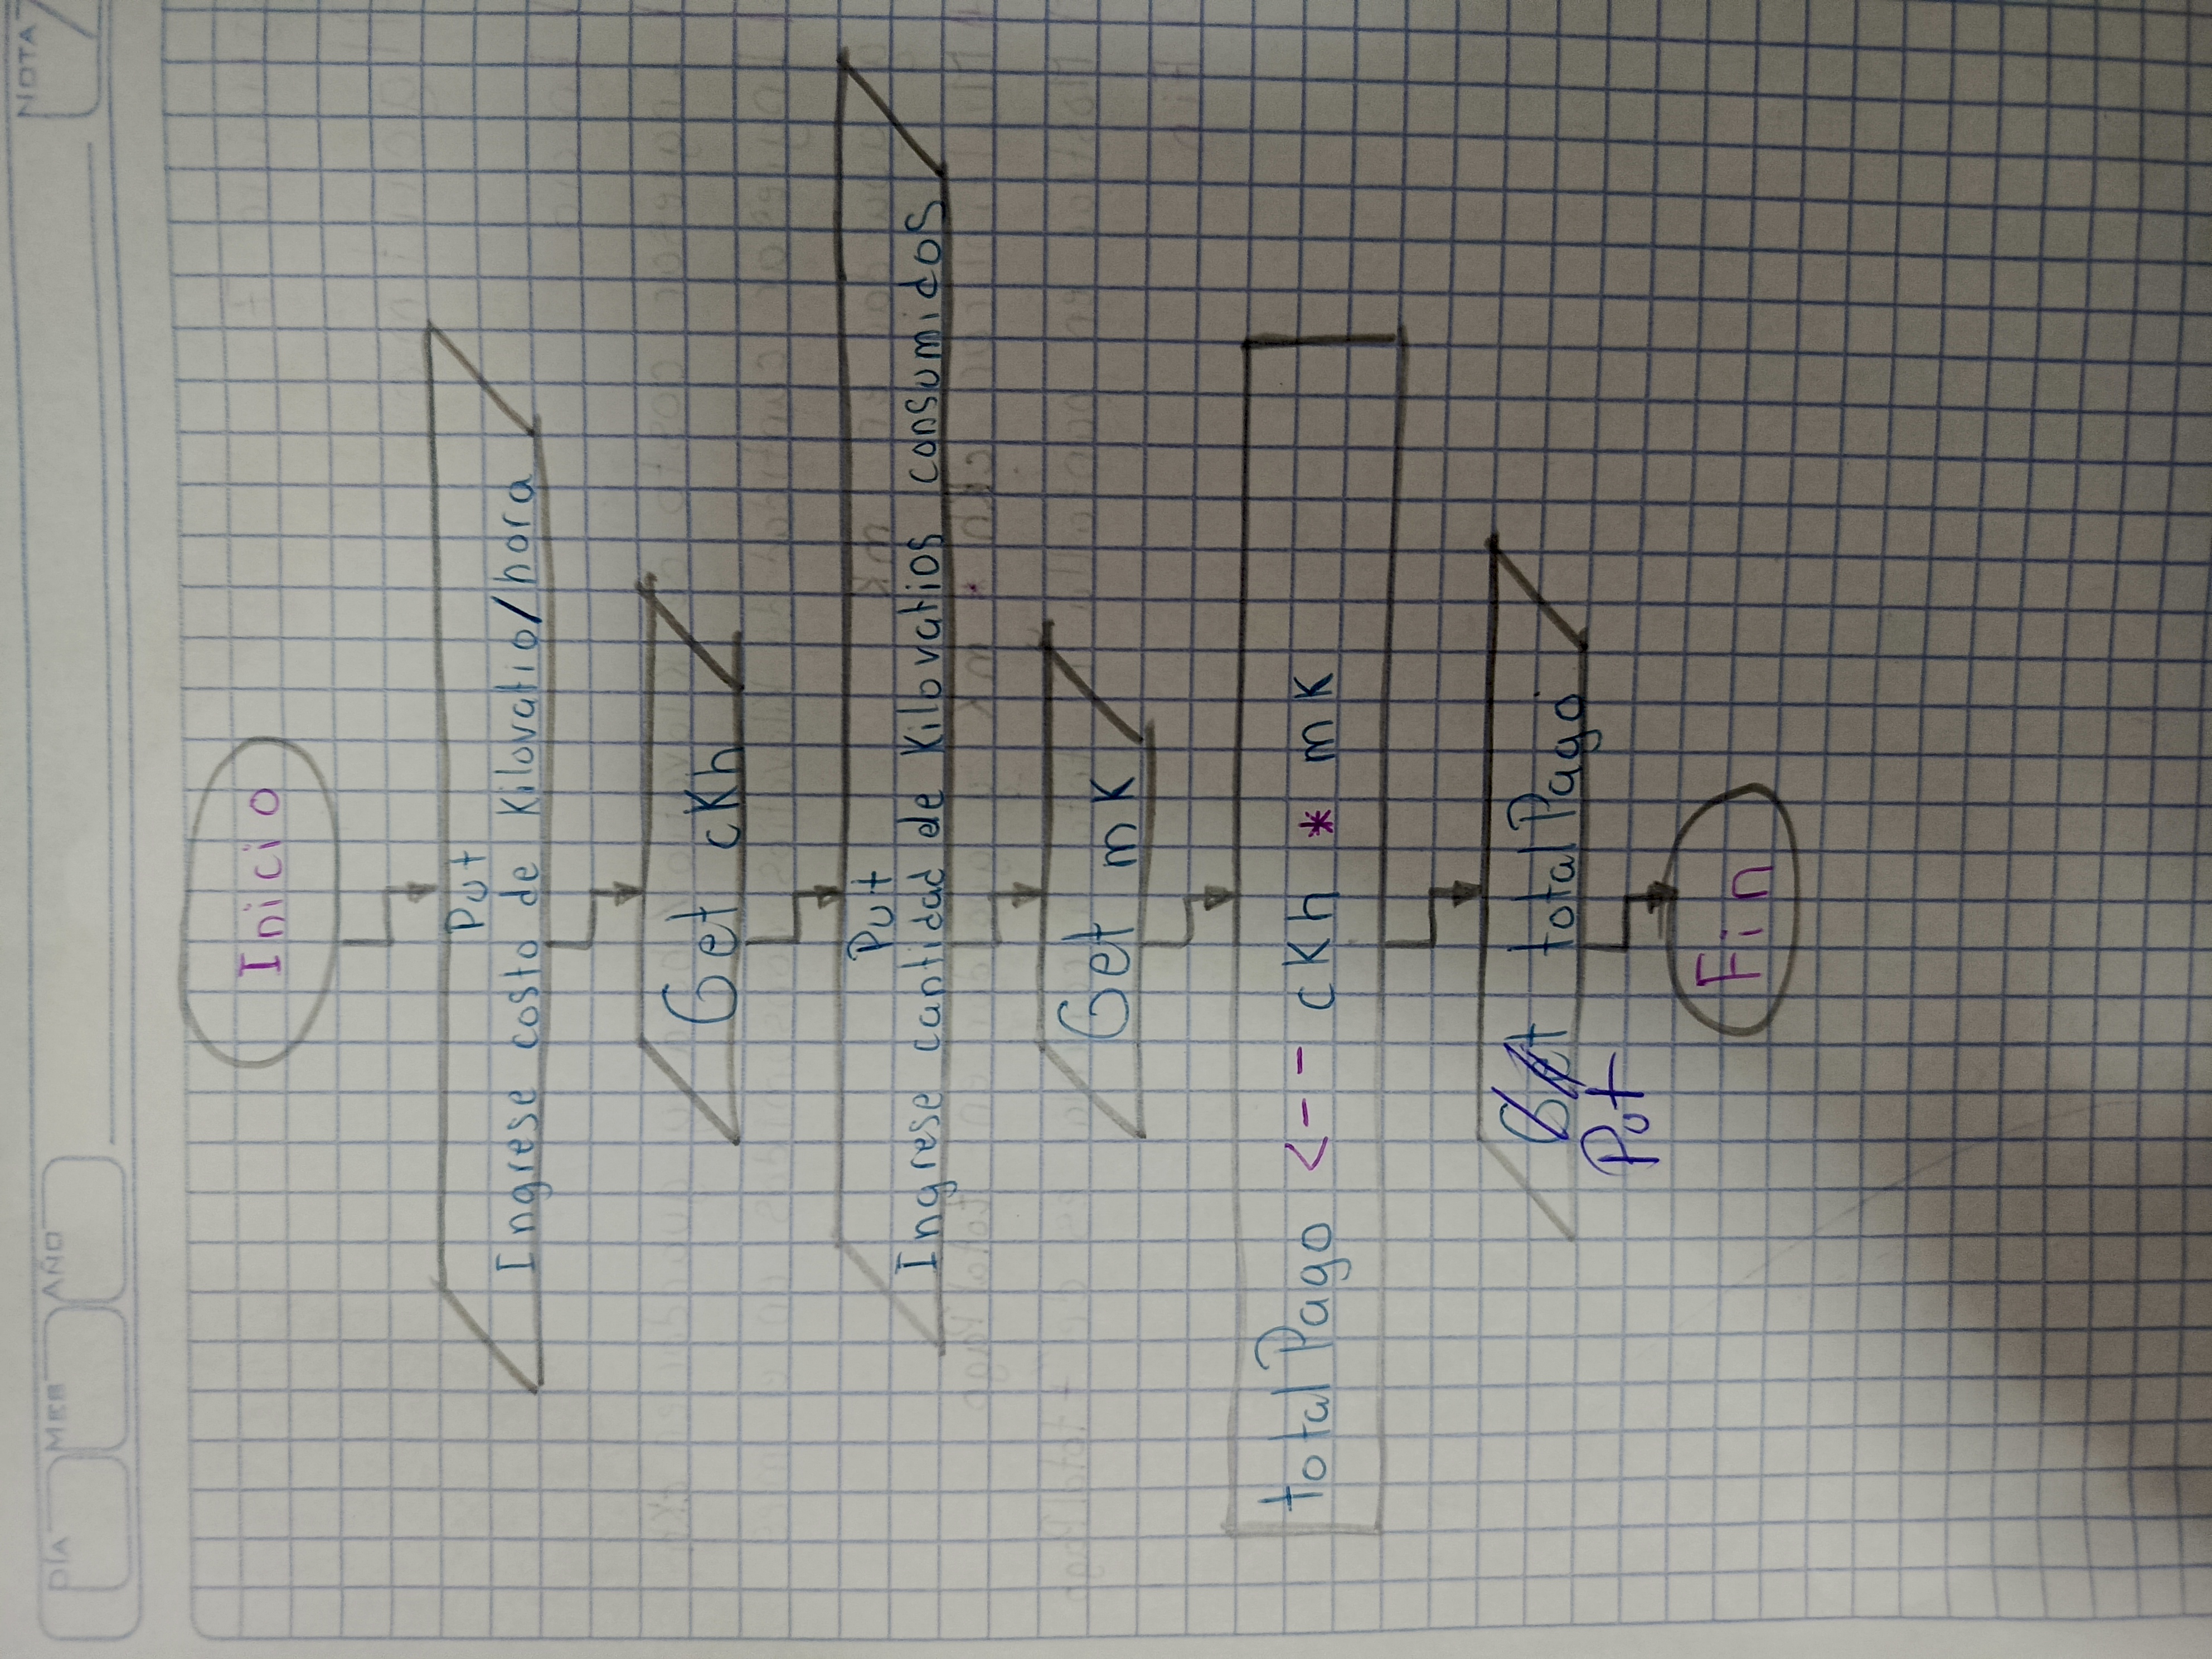 DÍA MES AÑO NOTA
Inicio
Put
Ingrese costo de Kilovatio/hora
Get cKh
Put
Ingrese cantidad de Kilovatios consumidos
Get mK
total Pago <-- cKh * mK
total Pago
Put
Fin